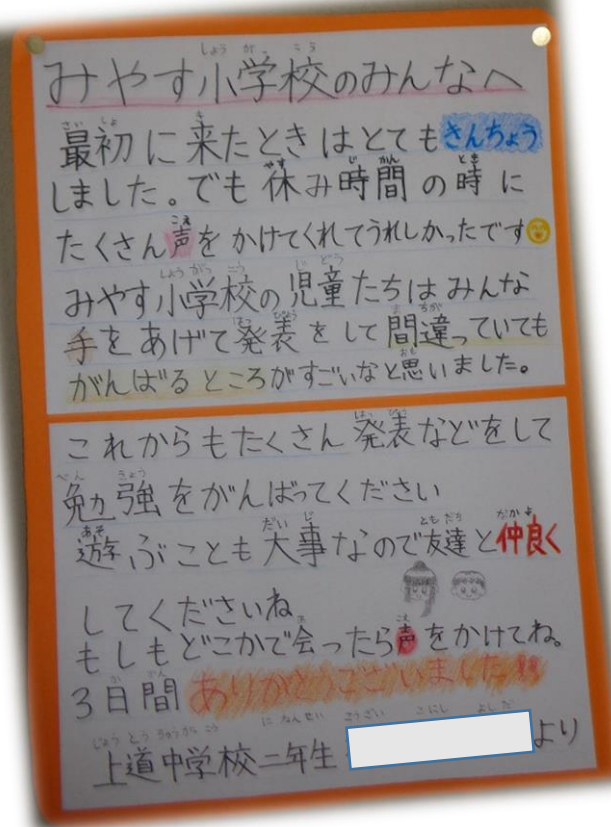 みやす小学校のみんなへ
最初に来たときはとてもきんちょう
しました。でも休み時間の時に
たくさん声をかけてくれてうれしかったです
みやす小学校の児童たちはみんな
手をあげて発表をして間違っていても
がんばるところがすごいなと思いました。
これからもたくさん発表などをして
勉強をがんばってください
遊ぶことも大事なので友達と仲良く
してくださいね
もしもどこかで会ったら声をかけてね。
3日間ありがとうございました!!
上道中学校二年生
より